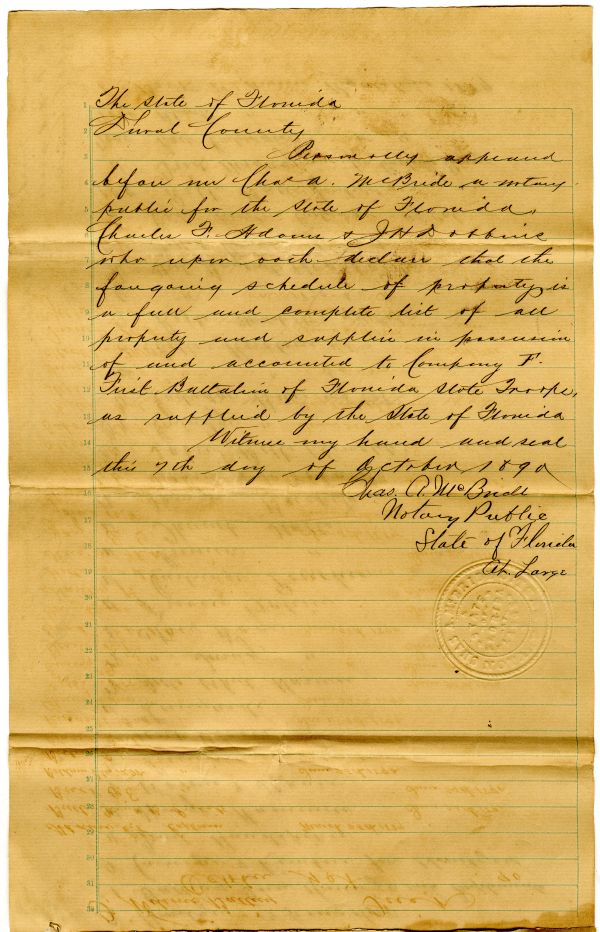 The State of Florida
Duval County
Personally appeared
before me Chas A. McBride a notary
public for the State of Florida,
Charles F. Adams & J H Dobbins
who upon oath declare that the
foregoing schedule of property is
a full and complete list of all
property and supplies in possession
of and accounted to Company F.
First Battalion of Florida State Troops,
as supplied by the State of Florida
Witness my hand and seal
this 7th day of October 1890
Chas. A. McBride
Notary Public
State of Florida
At. Large
1
2
3
4
5
6
7
8
9
10
11
12
13
14
15
16
17
18
19
20
21
22
23
24
25
26
27
28
29
30
31
32